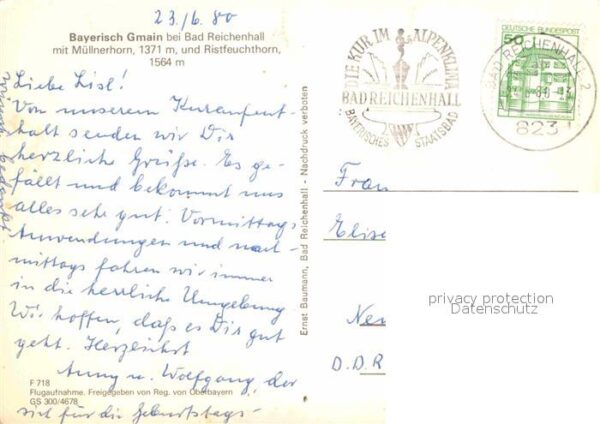 23./6. 80
Bayerisch Gmain bei Bad Reichenhall
mit Müllnerhorn, 1371 m, und Ristfeuchthorn,
1564 m
Liebe Lisl!
Von unserem Kuraufent-
halt senden wir Dir
herzliche Grüße. Es ge-
fällt und bekommt uns
alles sehr gut. Vormittags
Anwendungen und nach-
mittags fahren wir immer
in die herrliche Umgebung
Wir hoffen, daß es Dir gut
geht. Herzlichst
Anny u. Wolfgang, der
sich für die Geburtstags-
wünsche bedankt.
F 718
Flugaufnahme. Freigegeben von Reg. von Oberbayern
GS 300/4678
Ernst Baumann, Bad Reichenhall - Nachdruck verboten
DIE KUR IM ALPENKLIMA
BAD REICHENHALL
BAYERISCHES STAATSBAD
DEUTSCHE BUNDESPOST
50
BAD REICHENHALL 2
823
Frau
Elise
Neu
D.D.R
privacy protection
Datenschutz